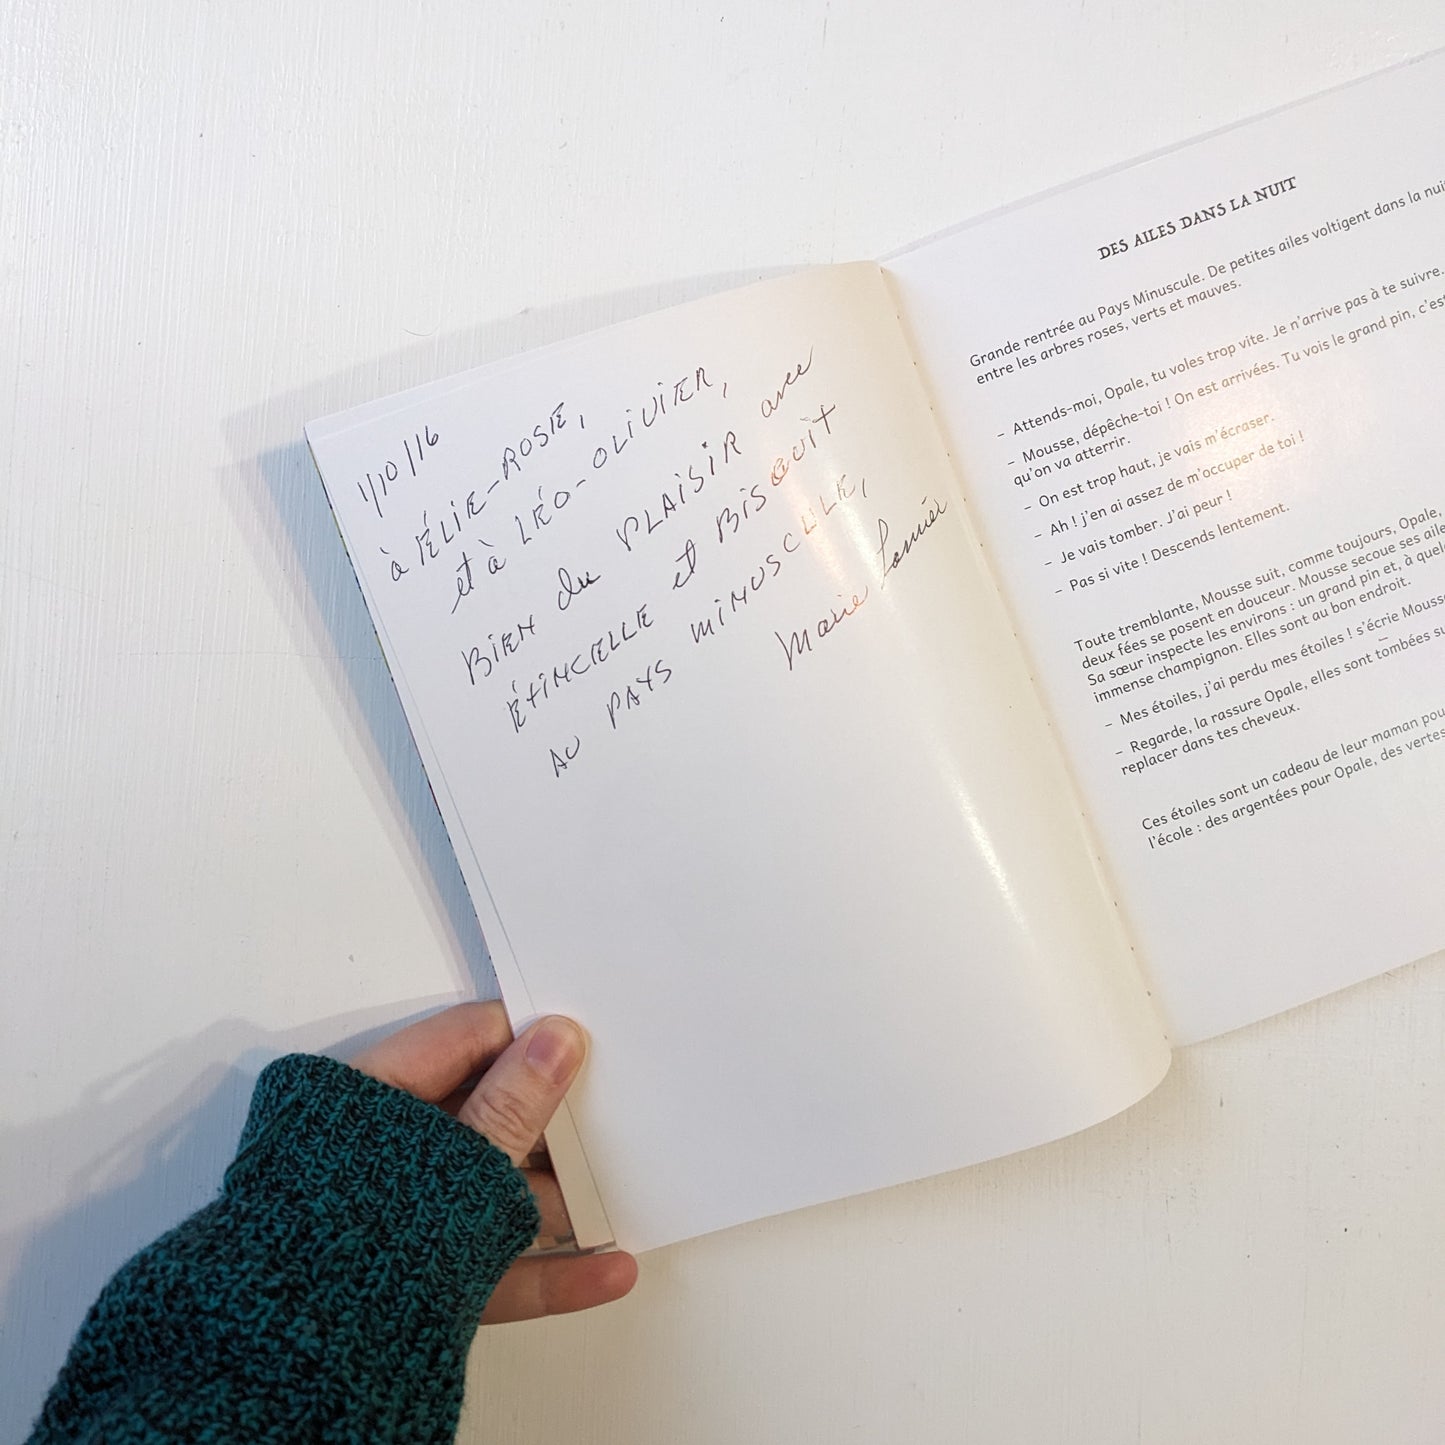 1/10/16
à ÉLIE-ROSE,
et à LÉO-OLIVIER,
BIEN du PLAISIR avec
ÉTINCELLE et BISCUIT
AU PAYS MINUSCULE,
Marie
DES AILES DANS LA NUIT
Grande rentrée au Pays Minuscule. De petites ailes voltigent dans la nuit
entre les arbres roses, verts et mauves.
– Attends-moi, Opale, tu voles trop vite. Je n'arrive pas à te suivre.
– Mousse, dépêche-toi ! On est arrivées. Tu vois le grand pin, c'est
qu'on va atterrir.
– On est trop haut, je vais m'écraser.
– Ah ! j'en ai assez de m'occuper de toi !
– Je vais tomber. J'ai peur !
– Pas si vite ! Descends lentement.
Toute tremblante, Mousse suit, comme toujours, Opale,
deux fées se posent en douceur. Mousse secoue ses aile
Sa sœur inspecte les environs : un grand pin et, à quel
immense champignon. Elles sont au bon endroit.
– Mes étoiles, j'ai perdu mes étoiles ! s'écrie Mousse
– Regarde, la rassure Opale, elles sont tombées su
replacer dans tes cheveux.
Ces étoiles sont un cadeau de leur maman pou
l'école : des argentées pour Opale, des vertes